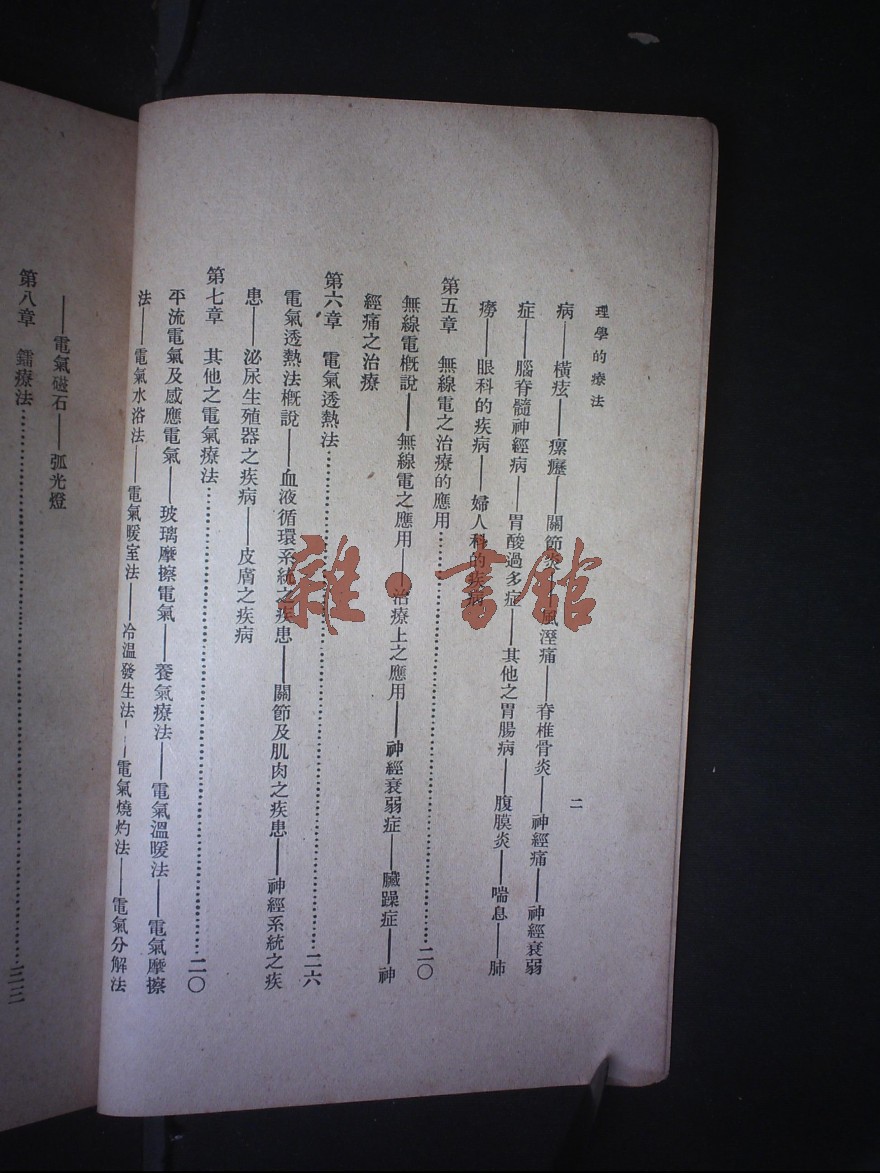 理學的療法
二
病——橫痃——瘰癧——關節炎——風溼痛——脊椎骨炎——神經痛——神經衰弱
症——腦脊髓神經病——胃酸過多症——其他之胃腸病——腹膜炎——喘息——肺
癆——眼科的疾病——婦人科的疾病
第五章 無線電之治療的應用…………二〇
無線電概說——無線電之應用——治療上之應用——神經衰弱症——臟躁症——神
經痛之治療
第六章 電氣透熱法…………二六
電氣透熱法概說——血液循環系統之疾患——關節及肌肉之疾患——神經系統之疾
患——泌尿生殖器之疾病——皮膚之疾病
第七章 其他之電氣療法…………二〇
平流電氣及感應電氣——玻璃摩擦電氣——養氣療法——電氣溫暖法——電氣摩擦
法——電氣水浴法——電氣暖室法——冷溫發生法——電氣燒灼法——電氣分解法
——電氣磁石——弧光燈
第八章 鐳療法…………三三
雜·書館